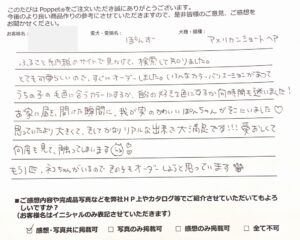 このたびはPoppetaをご注文いただき誠にありがとうございます。
今後のより良い商品作りの参考にさせていただきますので、是非皆様のご意見、ご感想を
お聞かせください。
お名前
愛犬・愛猫名
ぽんず
犬種・猫種
アメリカンショートヘア
ふるさと納税のサイトで見かけて、検索して知りました。
とても可愛らしいので、すぐにオーダーしました。いろいろなカラーバリエーションがあって
うちの子の毛色に合うカラーにするか、首輪のヌメを何色にするか何時間も迷いました!
お家に届き、開けた瞬間に、我が家のかわいいぽんちゃんがそこにいました♡
思っていたより大きくて、そしてかなりリアルな出来で大満足です!!!愛おしくて
何度も見て、触ってしまいます
もう1匹、ネコちゃんがいるのでまたその子もオーダーしようと思っています
■ご感想や完成品写真などを弊社HP上やカタログ等でご紹介させていただいてもよろ
しいですか?
(お客様名はイニシャルのみ表記させていただきます)
☑感想・写真共に掲載可 □写真のみ掲載可 □感想のみ掲載可 □全て不可